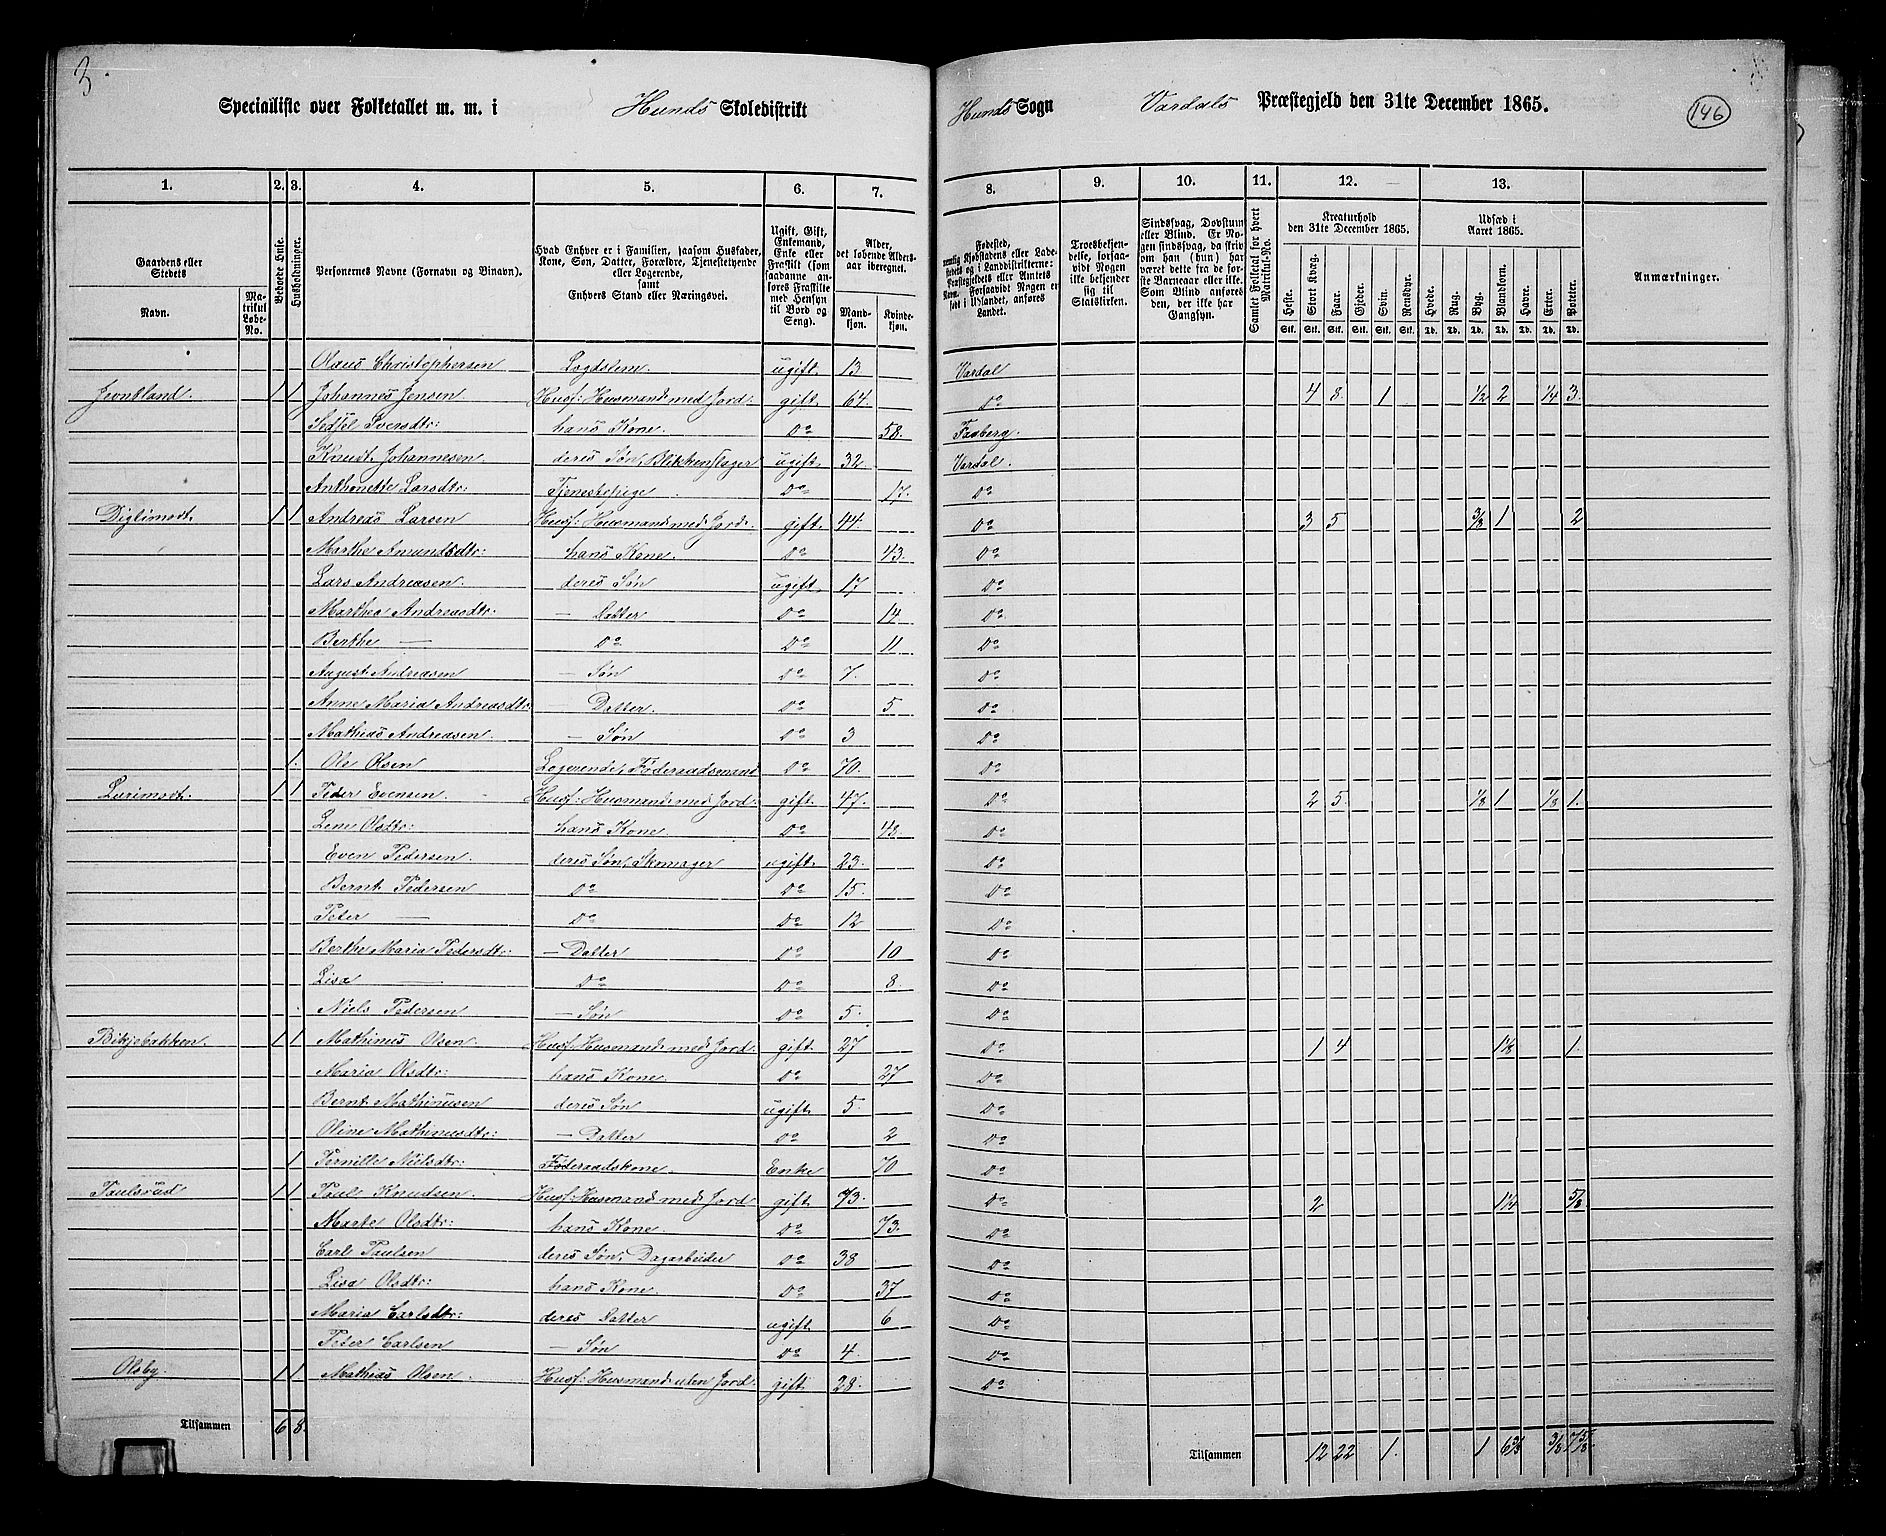 3.
Specialliste over Folketallet m. m. i Hunds Skoledistrikt Hunds Sogn Vardals Præstegjeld den 31te December 1865. 146
1. 2. 3. 4. 5. 6. 7. 8. 9. 10. 11. 12. 13.
Gaardens eller Stedets
Navn.
Matrikul Løbe-No.
Beboede Huse.
Husholdninger.
Personernes Navne (Fornavn og Binavn).
Hvad Enhver er i Familien, saasom Husfader, Kone, Søn, Datter, Forældre, Tjenestetyende eller Logerende, samt Enhvers Stand eller Næringsvei.
Ugift, Gift, Enkemand, Enke eller Fraskilt (som saadanne anføres Fraskilte med Hensyn til Bord og Seng).
Alder, det løbende Alders-aar iberegnet.
Mandkjøn. Kvindekjøn.
Fødested,
Præstegjeldets eller Amtets Navn. Forsaavidt Nogen er født i Udlandet, anføres Landet.
Troesbekjendelse, forsaavidt Nogen ikke bekjender sig til Statskirken.
Sindssvag, Døvstum eller Blind. Er Nogen sindssvag, da skrives om han (hun) har været dette fra de første Barneaar eller ikke. Som Blind anføres den, der ikke har Gangsyn.
Samlet Folketal for hvert Matrikul-No.
Kreaturhold den 31te December 1865.
Heste. Stort Kvæg. Faar. Gjeder. Svin. Rensdyr.
Udsæd i Aaret 1865.
Hvede. Rug. Byg. Blandkorn. Havre. Erter. Poteter.
Anmærkninger.
Olaus Christophersen Logdslem. ugift. 13 Vardal
1 1 Johannes Jensen Husf: Husmand med Jord. gift. 64 Do 4 8 1 1/2 2 1/4 3
hans Kone. Do 58. Faaberg.
Knudt Johannesen. deres Søn, Blikkenslager ugift. 32 Vardal.
Anthonette Larsdtr: Tjenestepige Do 17. Do
1 1 Andreas Larsen Husf: Husmand med Jord. gift. 44 Do 3 5 3/8 1 2
Marthe Amundsdtr: hans Kone. Do 43. Do
Lars Andreasen. deres Søn ugift. 17 Do
Marthea Andreasdtr: — Datter Do 14 Do
Berthe — Do Do 11 Do
August Andreasen — Søn Do 7. Do
Anne Maria Andreasdtr: Datter. Do 5 Do
Mathias Andreasen. — Søn Do 3 Do
1. Ole Olsen Logerende, Føderaadsmand Do 70. Do
1 1 Peder Evensen. Husf: Husmand med Jord. gift. 47. Do 2 5. 1/8 1 1/8 1.
Lene Olsdtr: hans Kone. Do 48 Do
Even Pedersen. deres Søn, Skomager ugift. 23. Do
Bernt Pedersen Do Do 15. Do
Peter — Do Do 12 Do
Berthe Maria Pedersdtr: — Datter Do 10 Do
Lisa — Do Do 8. Do
Niels Pedersen — Søn Do 5. Do
1 1 Mathinus Olsen. Husf: Husmand med Jord gift 27 Do 1 4 1. 
Maria Olsdtr: hans Kone. Do 27 Do
Bernt Mathinusen deres Søn ugift. 5. Do
Oline Mathinusdtr: — Datter Do 2 Do
1 Pernille Nielsdtr: Føderaadskone. Enke 70 Do
Paulsrud 1 1 Paul Knudsen Husf: Husmand med Jord gift 73. Do 2 1 1/4 5/8
Marte Olsdtr: hans Kone. Do 73. Do
Carl Paulsen deres Søn, Dagarbeider Do 38 Do
Lisa Olsdtr: hans Kone. Do 37 Do
Maria Carlsdtr: deres Datter ugift. 6 Do
Peder Carlsen — Søn Do 4. Do
Olsby. 1 1 Mathias Olsen Husf: Husmand uden Jord. gift. 28. Do
Tilsammen 6 8. Tilsammen 12 22 1. 1 6 3/8 3/8 7 5/8